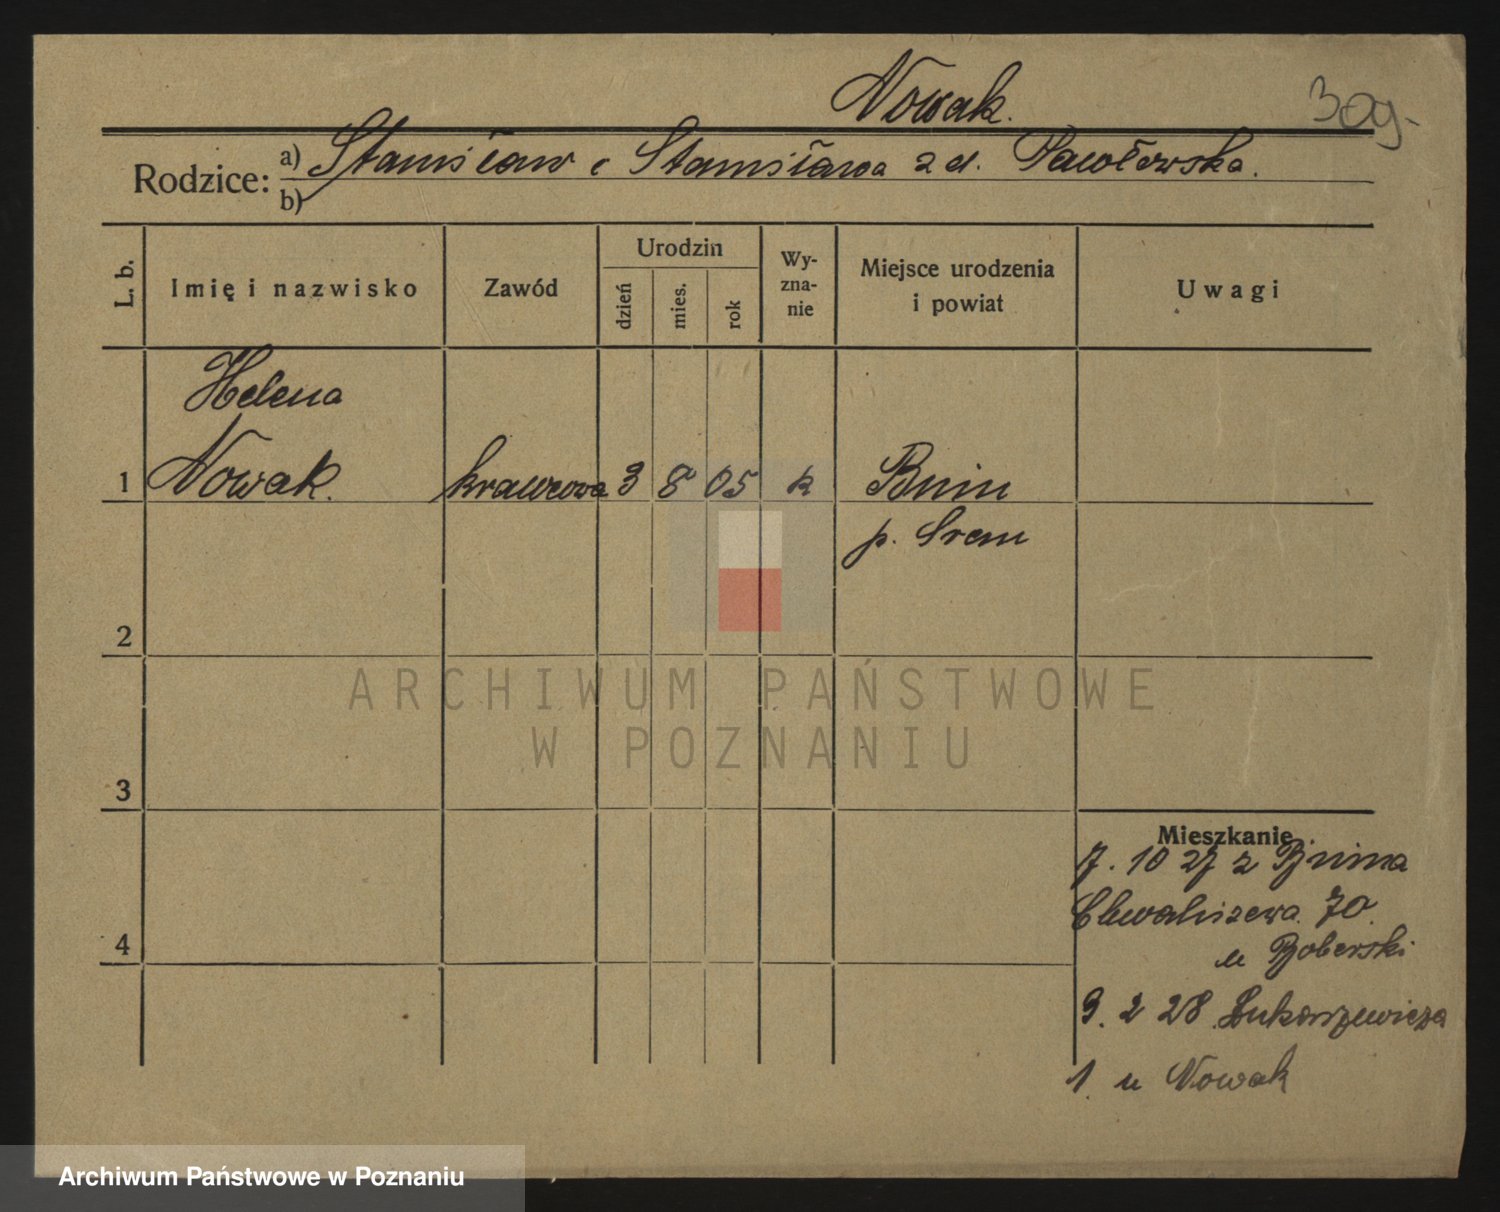 Nowak.
309.
Rodzice:
a) Stanisław i Stanisława z d. Pawłowska.
b)
L. b.
Imię i nazwisko
Zawód
Urodzin
dzień
mies.
rok
Wy-
zna-
nie
Miejsce urodzenia
i powiat
Uwagi
Helena
1 Nowak. krawcowa 3 8 05 k Bnin
p. Srem
2
3
4
Mieszkanie
7. 10 27 z Bnina
Chwaliszewo 70.
u Boberski
9. 2 28 Łukaszewicza
1 u Nowak
ARCHIWUM PAŃSTWOWE
W POZNANIU
Archiwum Państwowe w Poznaniu